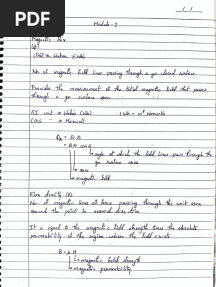 PDF
Module-1
Magnetic flux
(φ)
No. of magnetic field lines passing through a closed surface
Provides the measurement of the total magnetic field that passes
through a given surface area
SI unit = Weber (Wb) 1 Wb = 10⁸ Maxwells
CGS = Maxwell
= B·A
= BA cosθ
angle at which the field lines pass through the
surface area
area
magnetic field
Flux density (B)
No. of magnetic lines of force passing through the unit area
around the point in normal direction
It is equal to the magnetic field strength times the absolute
permeability of the region where the field exists.
B = μH
magnetic field strength
magnetic permeability